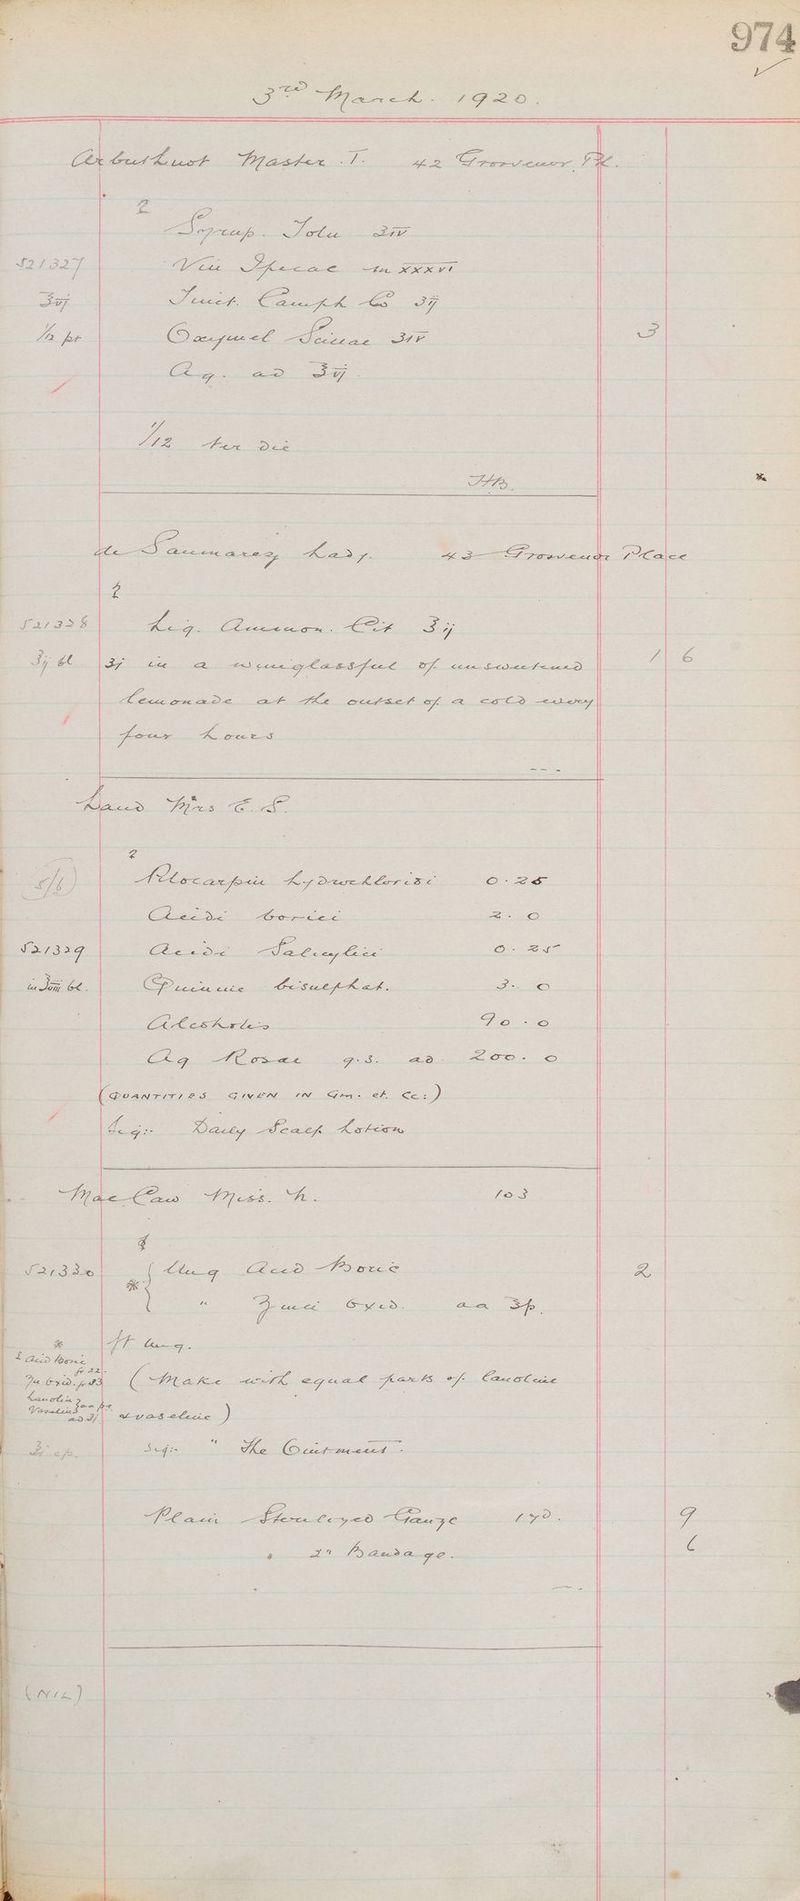 974
3rd March. 1920.
Arbuthnot Master. T. 42 Grosvenor. Pl.
Syrup. Tolu ʒiv
521327 Vin Ipecac m xxxvi
℥vj Tinct. Camph Co ʒij
1/12 pt Oxymel Scillae ʒiv 3
Aq. ad ℥vj.
1/12 ter die
HB.
de Saumarez Lady. 43 Grosvenor Place
521328 Liq. Ammon. Cit ℥ij
℥ij bl ʒj in a wineglassful of unsweetened 1 6
lemonade at the outset of a cold every
four hours
Land Mrs E. S.
5/6 Pilocarpin hydrochloridi 0.25
Acidi borici 2.0
521329 Acidi Salicylici 0.25
in ℥viii bl. Quinine bisulphat. 3.0
Alcoholis 90.0
Aq Rosae q.s. ad 200.0
(QUANTITIES GIVEN IN Gm. et. Cc:)
Sig:- Daily Scalp Lotion
Mac Caw Miss. N. 103
521330 Ung Acid Boric 2
* " Zinci Oxid. aa ʒp.
* ft ung.
Acid Boric
gr 22.
Zn Oxid. gr 33 (Make with equal parts of lanoline
Lanolin
Vaselin & vaseline)
Sig:- "The Ointment.
Plain Sterilized Gauze 1yd. 9
2" Bandage. 6
(NIL)